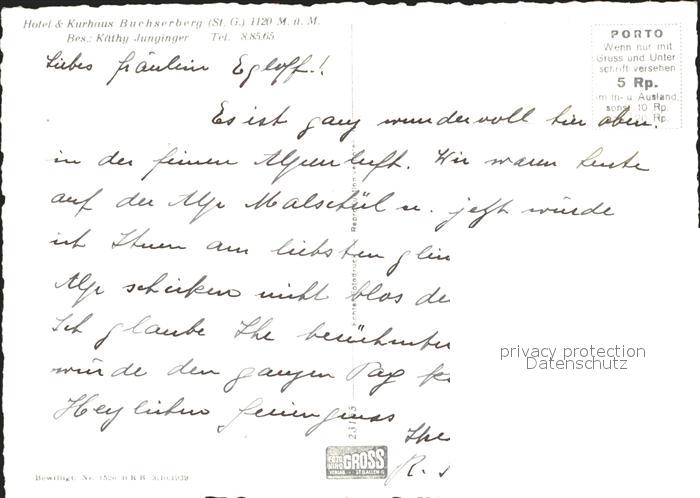 Hotel & Kurhaus Buchserberg (St. G.) 1120 M. ü. M.
Bes.: Käthy Junginger Tel. 8.85.65
PORTO
Wenn nur mit
Gruss und Unter
schrift versehen
5 Rp.
im In- u. Ausland,
sonst 10 Rp.
20 Rp.
Liebes Fräulein Egloff!!
Es ist ganz wundervoll hier oben.
in der feinen Alpenluft. Wir waren heute
auf der Alp Malschül u. jetzt würde
ich Ihnen am liebsten glei
Alp schicken nicht blos de
Ich glaube Ihr berühmter
würde den ganzen Tag
Herzlichen Feriengruss
Ihre
R.
23195
GROSS
ST. GALLEN
Bewilligt: Nr. 1526 B R B 3.10.1939
privacy protection
Datenschutz